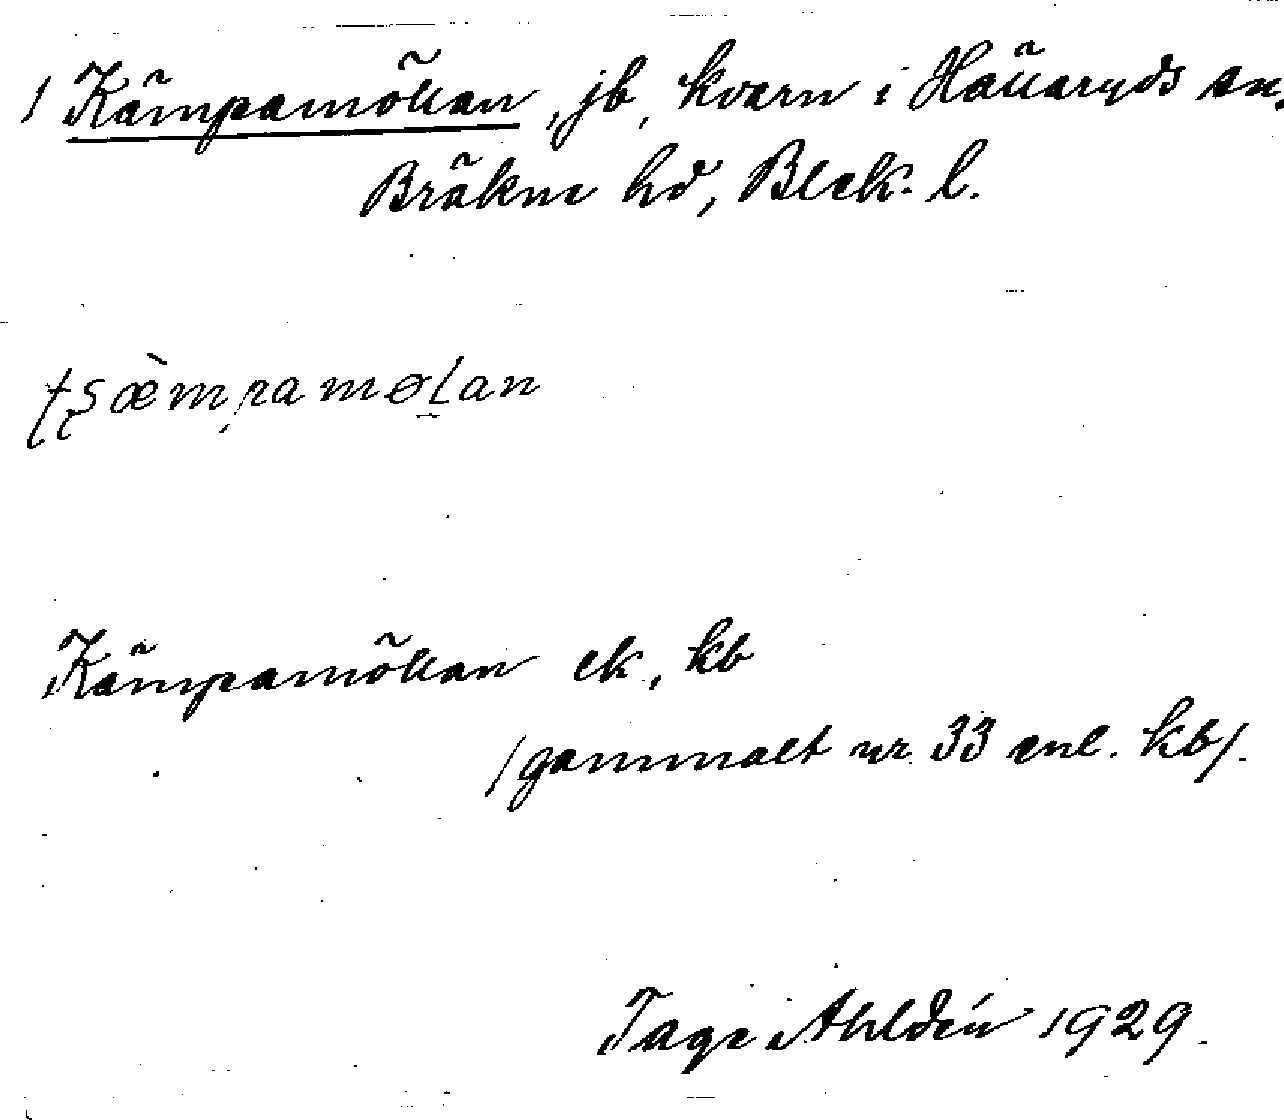 1 Kämpamöllan, jb, kvarn i Hällaryds sn.
Bräkne hd, Blek. l.
tʂæ̀mpamøl̲an
Kämpamöllan ek, kb
/gammalt nr. 33 enl. kb/.
Tage Ahldén 1929.